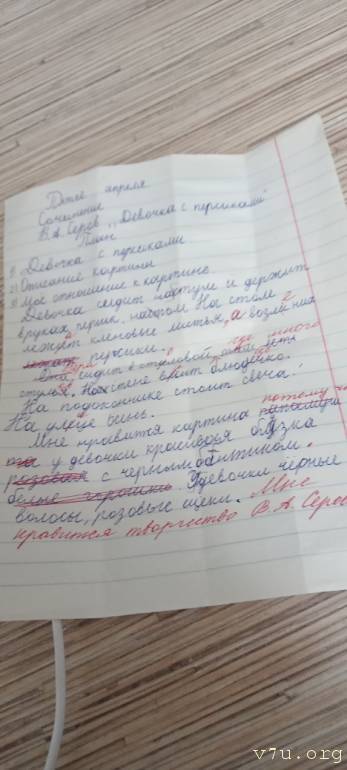 апреля
Сочинение
В.А. Серов „Девочка с персиками"
План
1) Девочка с персиками
2) Описание картины
3) Моё отношение к картине.
Девочка сидит на стуле и держит
в руках персик. На столе
лежат кленовые листья, а возле них
персики.
Она сидит в столовой, где много
стульев. На стене висит блюдечко.
На подоконнике стоит свеча.
На улице осень.
Мне нравится картина потому
у девочки красивая блузка
розовая с чёрным бантиком.
белые горошки У девочки чёрные
волосы, розовые щёки. Мне
нравится творчество В. А. Серов
v7u.org